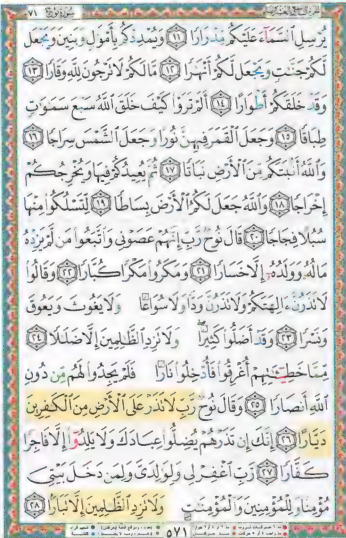 سُورَةُ نُوح ٧١
يُرْسِلِ ٱلسَّمَآءَ عَلَيْكُم مِّدْرَارًا ١١ وَيُمْدِدْكُم بِأَمْوَٰلٍ وَبَنِينَ وَيَجْعَل
لَّكُمْ جَنَّٰتٍ وَيَجْعَل لَّكُمْ أَنْهَٰرًا ١٢ مَّا لَكُمْ لَا تَرْجُونَ لِلَّهِ وَقَارًا ١٣
وَقَدْ خَلَقَكُمْ أَطْوَارًا ١٤ أَلَمْ تَرَوْا۟ كَيْفَ خَلَقَ ٱللَّهُ سَبْعَ سَمَٰوَٰتٍ
طِبَاقًا ١٥ وَجَعَلَ ٱلْقَمَرَ فِيهِنَّ نُورًا وَجَعَلَ ٱلشَّمْسَ سِرَاجًا ١٦
وَٱللَّهُ أَنۢبَتَكُم مِّنَ ٱلْأَرْضِ نَبَاتًا ١٧ ثُمَّ يُعِيدُكُمْ فِيهَا وَيُخْرِجُكُمْ
إِخْرَاجًا ١٨ وَٱللَّهُ جَعَلَ لَكُمُ ٱلْأَرْضَ بِسَاطًا ١٩ لِّتَسْلُكُوا۟ مِنْهَا
سُبُلًا فِجَاجًا ٢٠ قَالَ نُوحٌ رَّبِّ إِنَّهُمْ عَصَوْنِى وَٱتَّبَعُوا۟ مَن لَّمْ يَزِدْهُ
مَالُهُۥ وَوَلَدُهُۥٓ إِلَّا خَسَارًا ٢١ وَمَكَرُوا۟ مَكْرًا كُبَّارًا ٢٢ وَقَالُوا۟
لَا تَذَرُنَّ ءَالِهَتَكُمْ وَلَا تَذَرُنَّ وَدًّا وَلَا سُوَاعًا وَلَا يَغُوثَ وَيَعُوقَ
وَنَسْرًا ٢٣ وَقَدْ أَضَلُّوا۟ كَثِيرًا وَلَا تَزِدِ ٱلظَّٰلِمِينَ إِلَّا ضَلَٰلًا ٢٤
مِّمَّا خَطِيٓـَٰٔتِهِمْ أُغْرِقُوا۟ فَأُدْخِلُوا۟ نَارًا فَلَمْ يَجِدُوا۟ لَهُم مِّن دُونِ
ٱللَّهِ أَنصَارًا ٢٥ وَقَالَ نُوحٌ رَّبِّ لَا تَذَرْ عَلَى ٱلْأَرْضِ مِنَ ٱلْكَٰفِرِينَ
دَيَّارًا ٢٦ إِنَّكَ إِن تَذَرْهُمْ يُضِلُّوا۟ عِبَادَكَ وَلَا يَلِدُوٓا۟ إِلَّا فَاجِرًا
كَفَّارًا ٢٧ رَّبِّ ٱغْفِرْ لِى وَلِوَٰلِدَىَّ وَلِمَن دَخَلَ بَيْتِىَ
مُؤْمِنًا وَلِلْمُؤْمِنِينَ وَٱلْمُؤْمِنَٰتِ وَلَا تَزِدِ ٱلظَّٰلِمِينَ إِلَّا تَبَارًۢا ٢٨
٥٧١